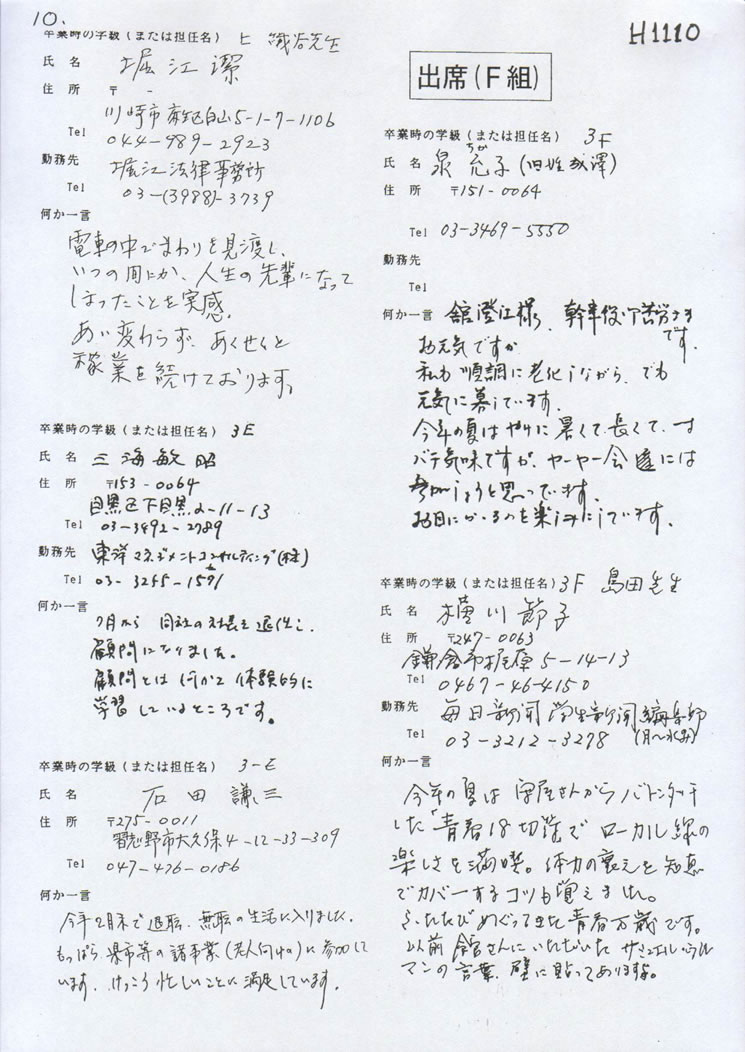 10.
H1110
卒業時の学級(または担任名) ヒ 織谷先生
氏 名 堀江 潔
住 所 〒 -
川崎市麻生区白山5-1-7-1106
Tel 044-989-2923
勤務先 堀江法律事務所
Tel 03-(3988)-3739
何か一言
電車の中でまわりを見渡し、
いつの間にか、人生の先輩になって
しまったことを実感。
あい変わらず、あくせくと
稼業を続けております。
卒業時の学級(または担任名) 3E
氏 名 三海敏昭
住 所 〒153-0064
目黒区下目黒2-11-13
Tel 03-3492-2789
勤務先 東洋マネジメントコンサルティング(株)
Tel 03-3245-1571
何か一言
7月から 同社の社長を退任し、
顧問になりました。
顧問とは何かを体験的に
学習しているところです。
卒業時の学級(または担任名) 3-E
氏 名 石田 謙三
住 所 〒275-0011
習志野市大久保4-12-33-309
Tel 047-476-0186
何か一言
今年2月末で退職、無職の生活に入りました。
もっぱら、県市等の諸事業(老人向け)に参加して
います。けっこう忙しいことに満足しています。
出席(F組)
卒業時の学級(または担任名) 3F
ちか
氏 名 泉 允子(旧姓 成澤)
住 所 〒151-0064
Tel 03-3469-5550
勤務先
Tel
何か一言 舘澄江様、幹事役ご苦労さま
です。
お元気ですか
私も順調に老化しながら、でも
元気に暮しています。
今年の夏はやけに暑くて、長くて、
バテ気味ですが、ヤーヤー会には
参加しようと思っています。
お目にかかるのを楽しみにしています。
卒業時の学級(または担任名) 3F 島田先生
氏 名 横川 節子
住 所 〒247-0063
鎌倉市梶原5-14-13
Tel 0467-46-4150
勤務先 毎日新聞 学生新聞編集部
Tel 03-3212-3278 (月〜水のみ)
何か一言
今年の夏は 守屋さんからバトンタッチ
した「青春18切符」で ローカル線の
楽しさを満喫。体力の衰えを知恵
でカバーするコツも覚えました。
ふたたびめぐってきた青春万歳です。
以前 舘さんにいただいた サミュエル・ウル
マンの言葉、壁に貼ってありますよ。